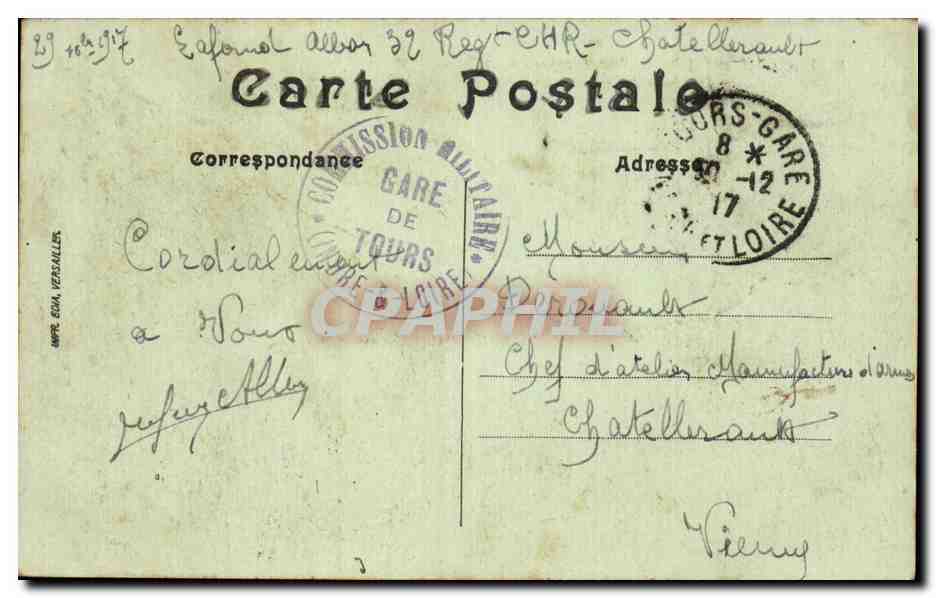 29 1917 albar 32 Reg CHR - Chatellerault
Carte Postale
Correspondance
Adresse
COMMISSION MILITAIRE
GARE
DE
TOURS
LOIRE
TOURS-GARE
8 *
-12
17
ET LOIRE
IMPR. EDIA, VERSAILLES
Cordialement
a Vous
Monsieur
Derouault
Chef d'atelier Manufacture d'armes
Chatellerault
Vienne
CPAPHIL